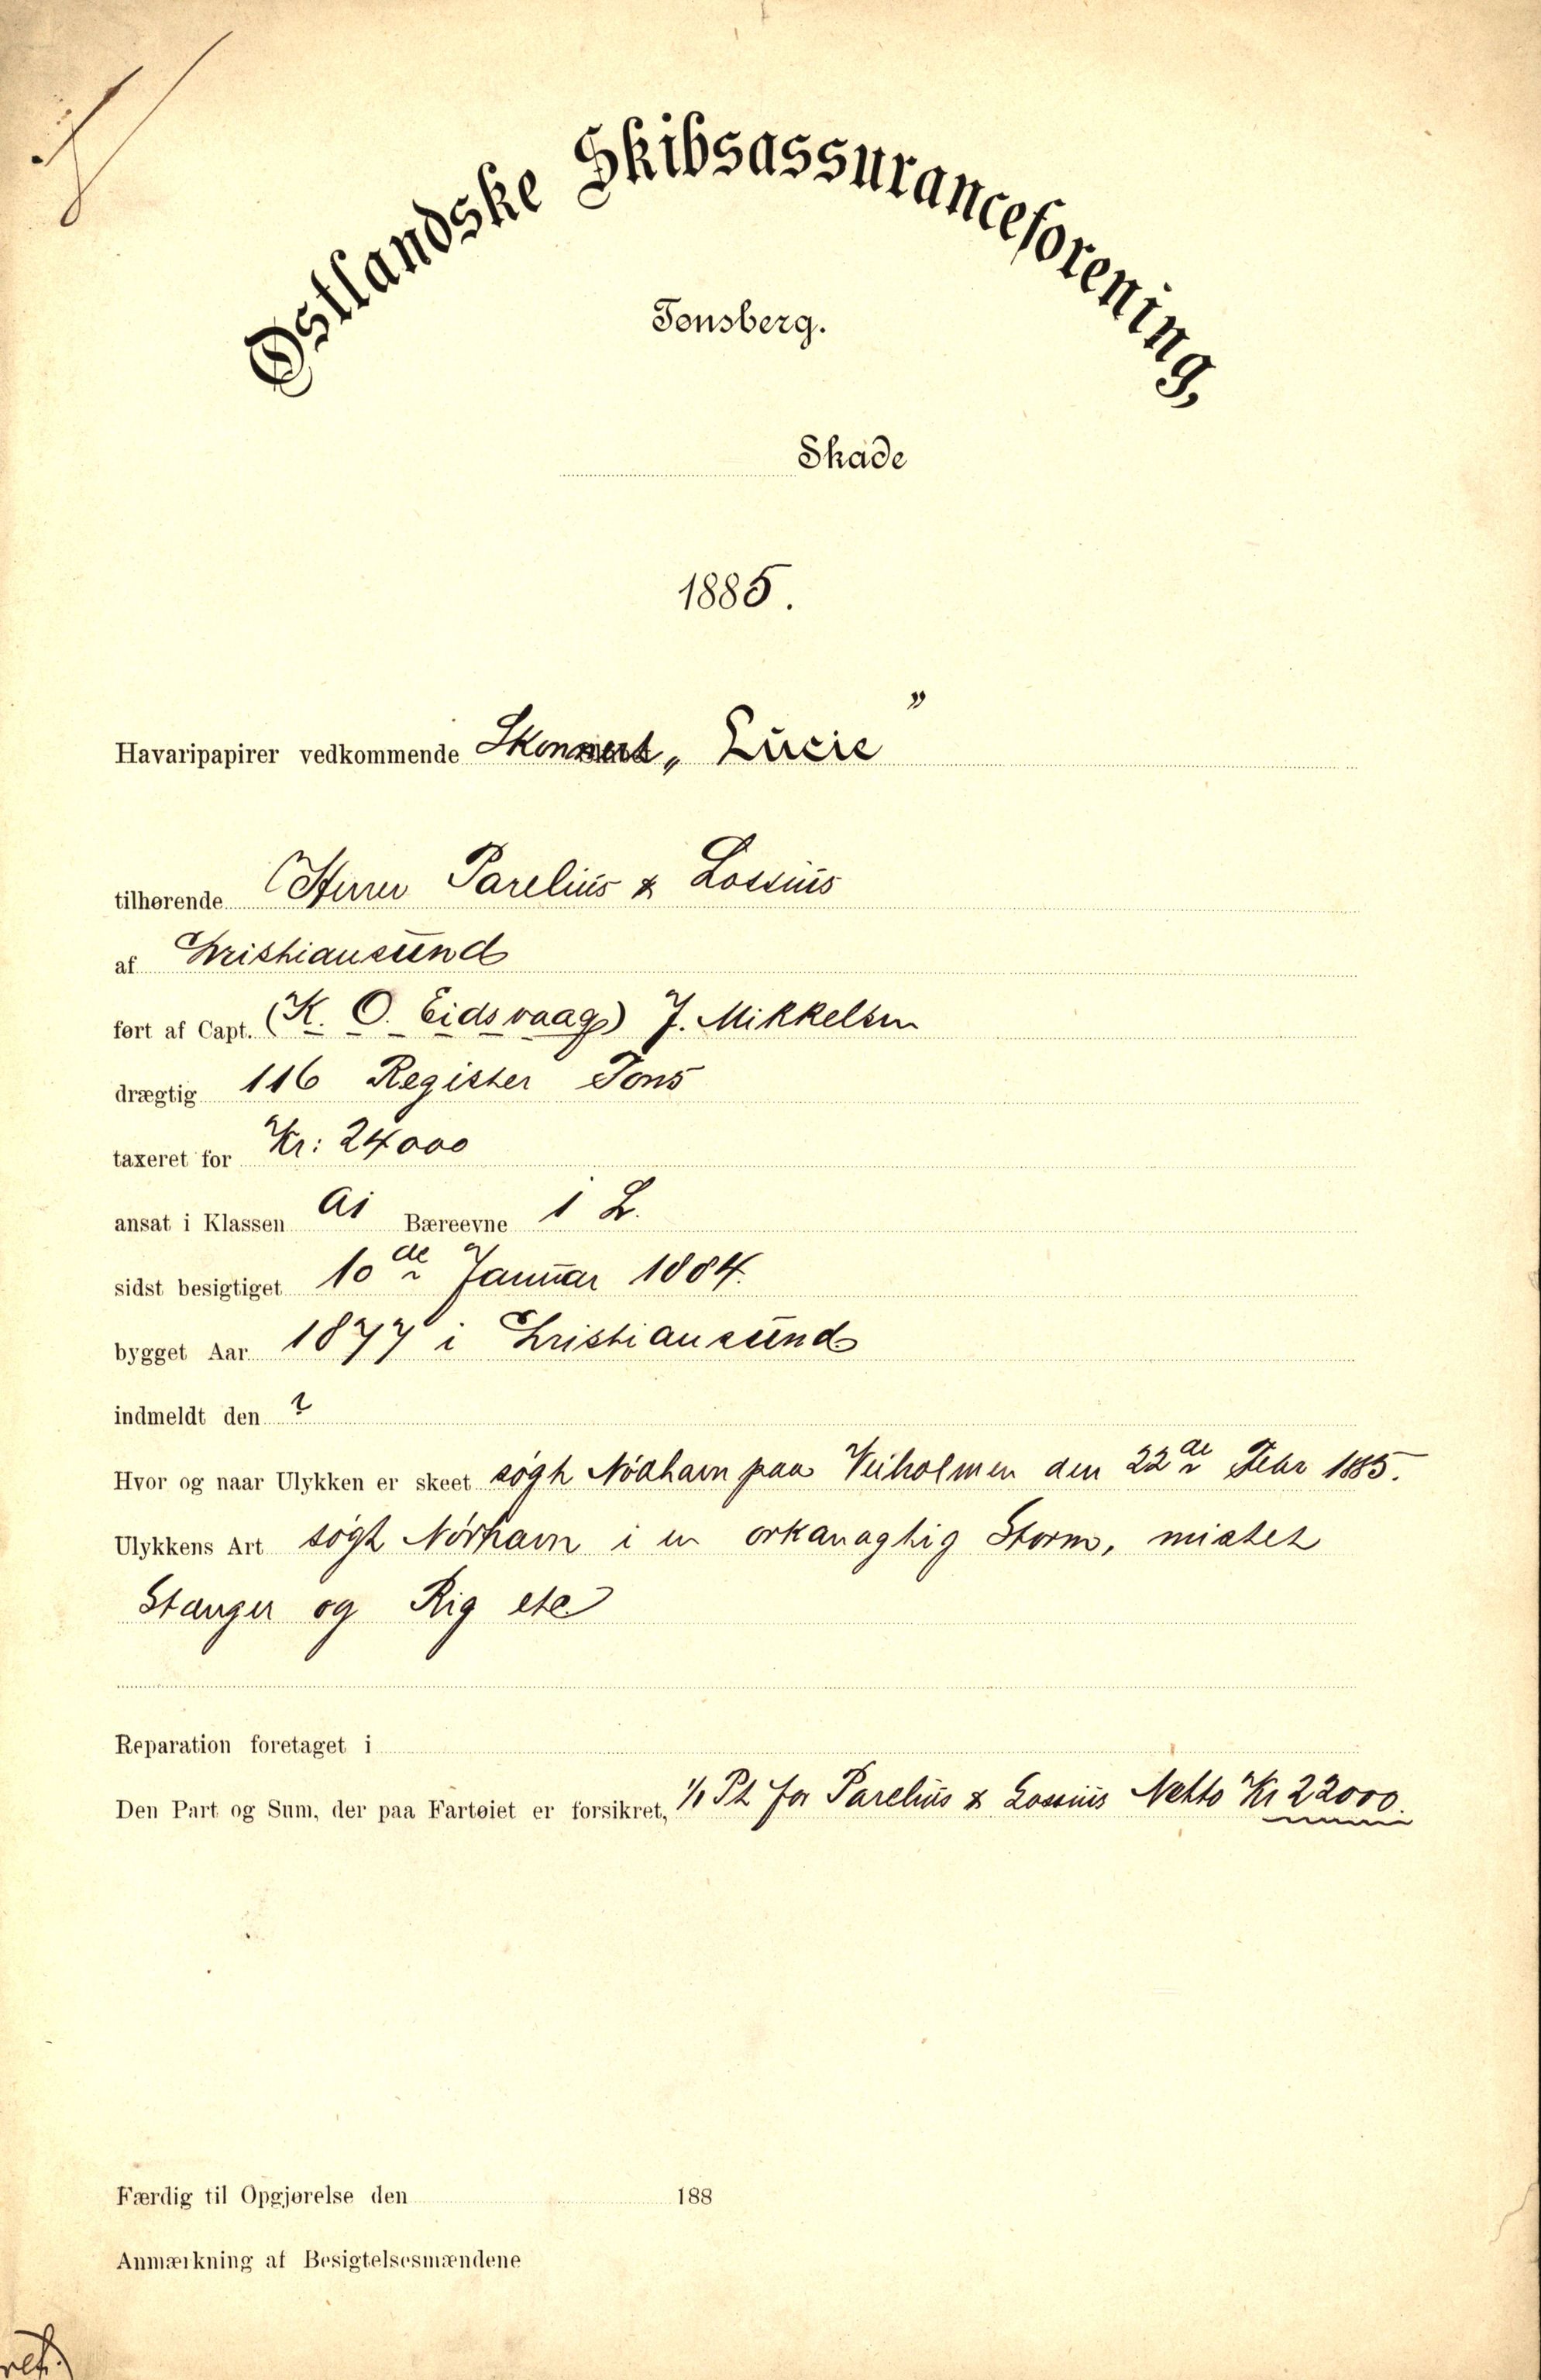 Østlandske Skibsassuranceforening,
Tønsberg.
Skade
1885.
Havaripapirer vedkommende Skonnert „Lucie”
tilhørende Herrer Parelius & Lossius
af Christiansund
ført af Capt. (K. O. Eidsvaag) J. Mikkelsen
drægtig 116 Register Tons
taxeret for Kr: 24000
ansat i Klassen A1 Bæreevne 1 L.
sidst besigtiget 10de Januar 1884.
bygget Aar 1877 i Christiansund
indmeldt den ?
Hvor og naar Ulykken er skeet søgt Nödhavn paa Veiholmen den 22de Febr 1885.
Ulykkens Art søgt Nørhavn i en orkanagtig Storm, mistet
Stænger og Rig etc
Reparation foretaget i
Den Part og Sum, der paa Fartøiet er forsikret, 1/1 Pt for Parelius & Lossius Netto Kr 22000.
Færdig til Opgjørelse den 188
Anmærkning af Besigtelsesmændene